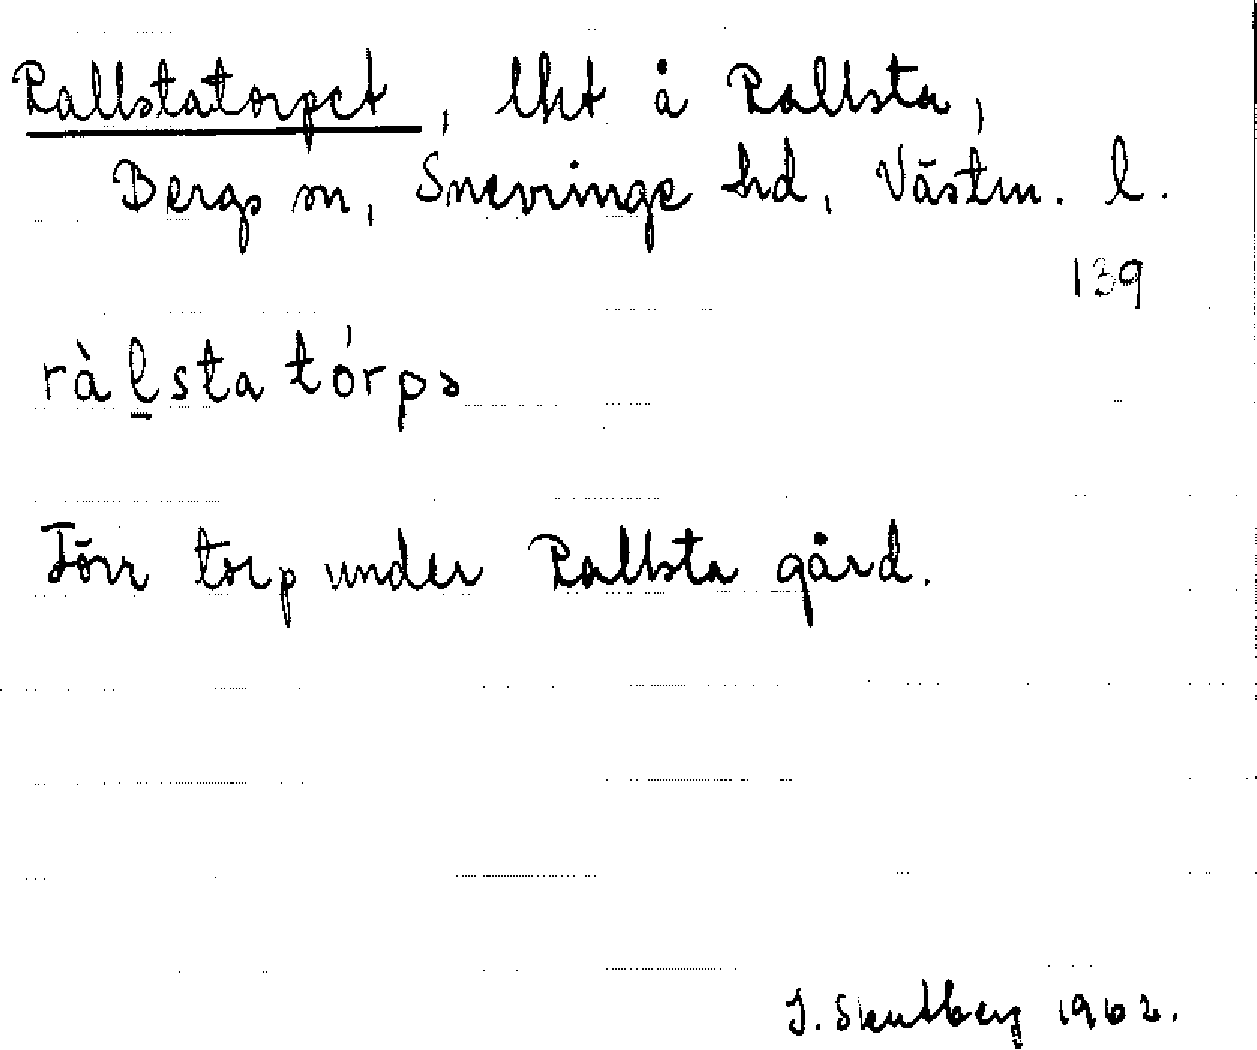 Rallstatorpet, lht å Rallsta,
Bergs sn, Snevringe hd, Västm. l.
139
ràl̠sta tórpə
Förr torp under Rallsta gård.
J. Skutberg 1962.